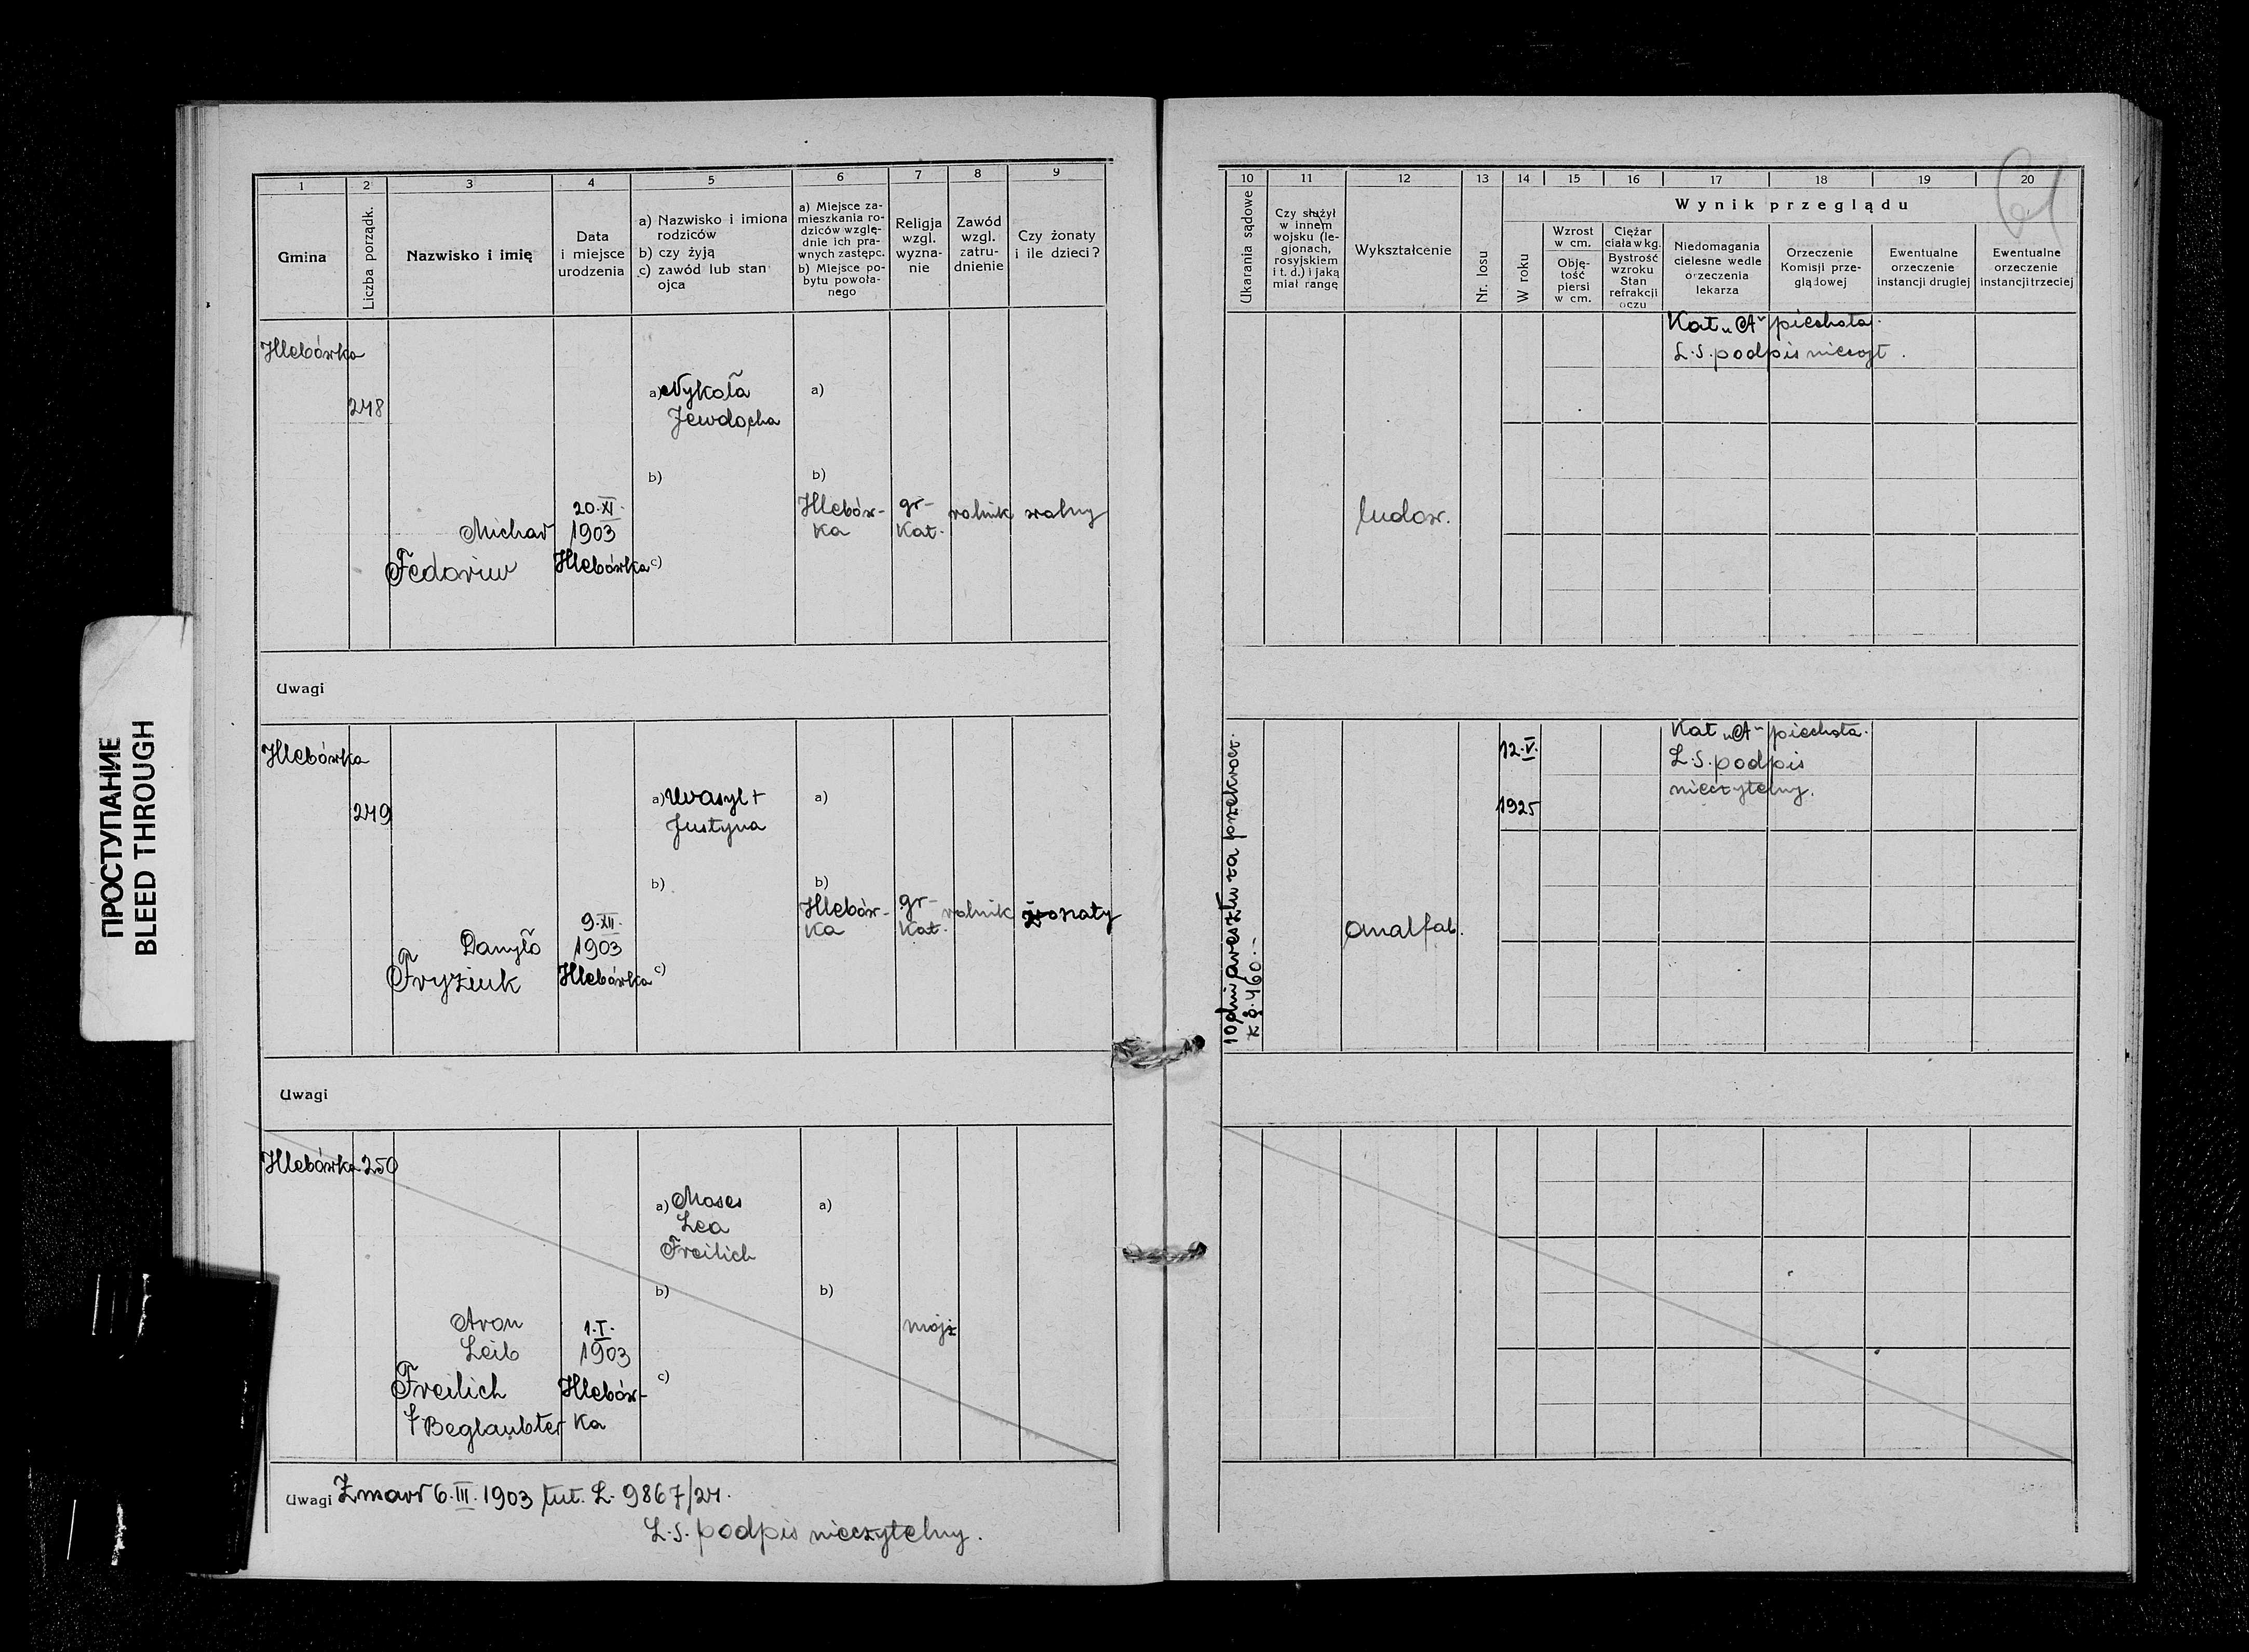 1 2 3 4 5 6 7 8 9
Gmina
Liczba porządk.
Nazwisko i imię
Data
i miejsce
urodzenia
a) Nazwisko i imiona
rodziców
b) czy żyją
c) zawód lub stan
ojca
a) Miejsce za-
mieszkania ro-
dziców wzglę-
dnie ich pra-
wnych zastępc.
b) Miejsce po-
bytu powoła-
nego
Religja
wzgl.
wyzna-
nie
Zawód
wzgl.
zatru-
dnienie
Czy żonaty
i ile dzieci?
Hlebówka
248
a) Nykoła
Jewdocha
a)
b)
b)
Michał
Fedoriw
20.XI.
1903
Hlebówka
c)
Hlebów-
ka
gr-
kat.
rolnik
wolny
Uwagi
Hlebówka
249
a) Wasyl +
Justyna
a)
b)
b)
Danyło
Fryziuk
9.XII.
1903
Hlebówka
c)
Hlebów-
ka
gr-
kat.
rolnik
żonaty
Uwagi
Hlebówka 250
a) Moses
Lea
Freilich
a)
b)
b)
Aron
Leib
Freilich
f. Beglaubter
1.I.
1903
Hlebów-
ka
c)
mojż
Uwagi Zmarł 6.III.1903 tut. L. 9867/24.
L.S. podpis nieczytelny.
10 11 12 13 14 15 16 17 18 19 20
61
Ukarania sądowe
Czy służył
w innem
wojsku (le-
gjonach,
rosyjskiem
i t. d.) i jaką
miał rangę
Wykształcenie
Nr. losu
Wynik przeglądu
W roku
Wzrost
w cm.
Obję-
tość
piersi
w cm.
Ciężar
ciała w kg.
Bystrość
wzroku
Stan
refrakcji
oczu
Niedomagania
cielesne wedle
orzeczenia
lekarza
Orzeczenie
Komisji prze-
glądowej
Ewentualne
orzeczenie
instancji drugiej
Ewentualne
orzeczenie
instancji trzeciej
Kat „A" piechota.
L.S. podpis nieczyt.
ludow.
10 dni aresztu za przekrocz.
z § 460.-
analfab.
12.V.
1925
Kat „A" piechota.
L.S. podpis
nieczytelny.
ПРОСТУПАНИЕ
BLEED THROUGH